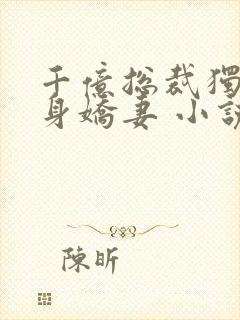 千億總裁獨
身嬌妻 小說
陳昕